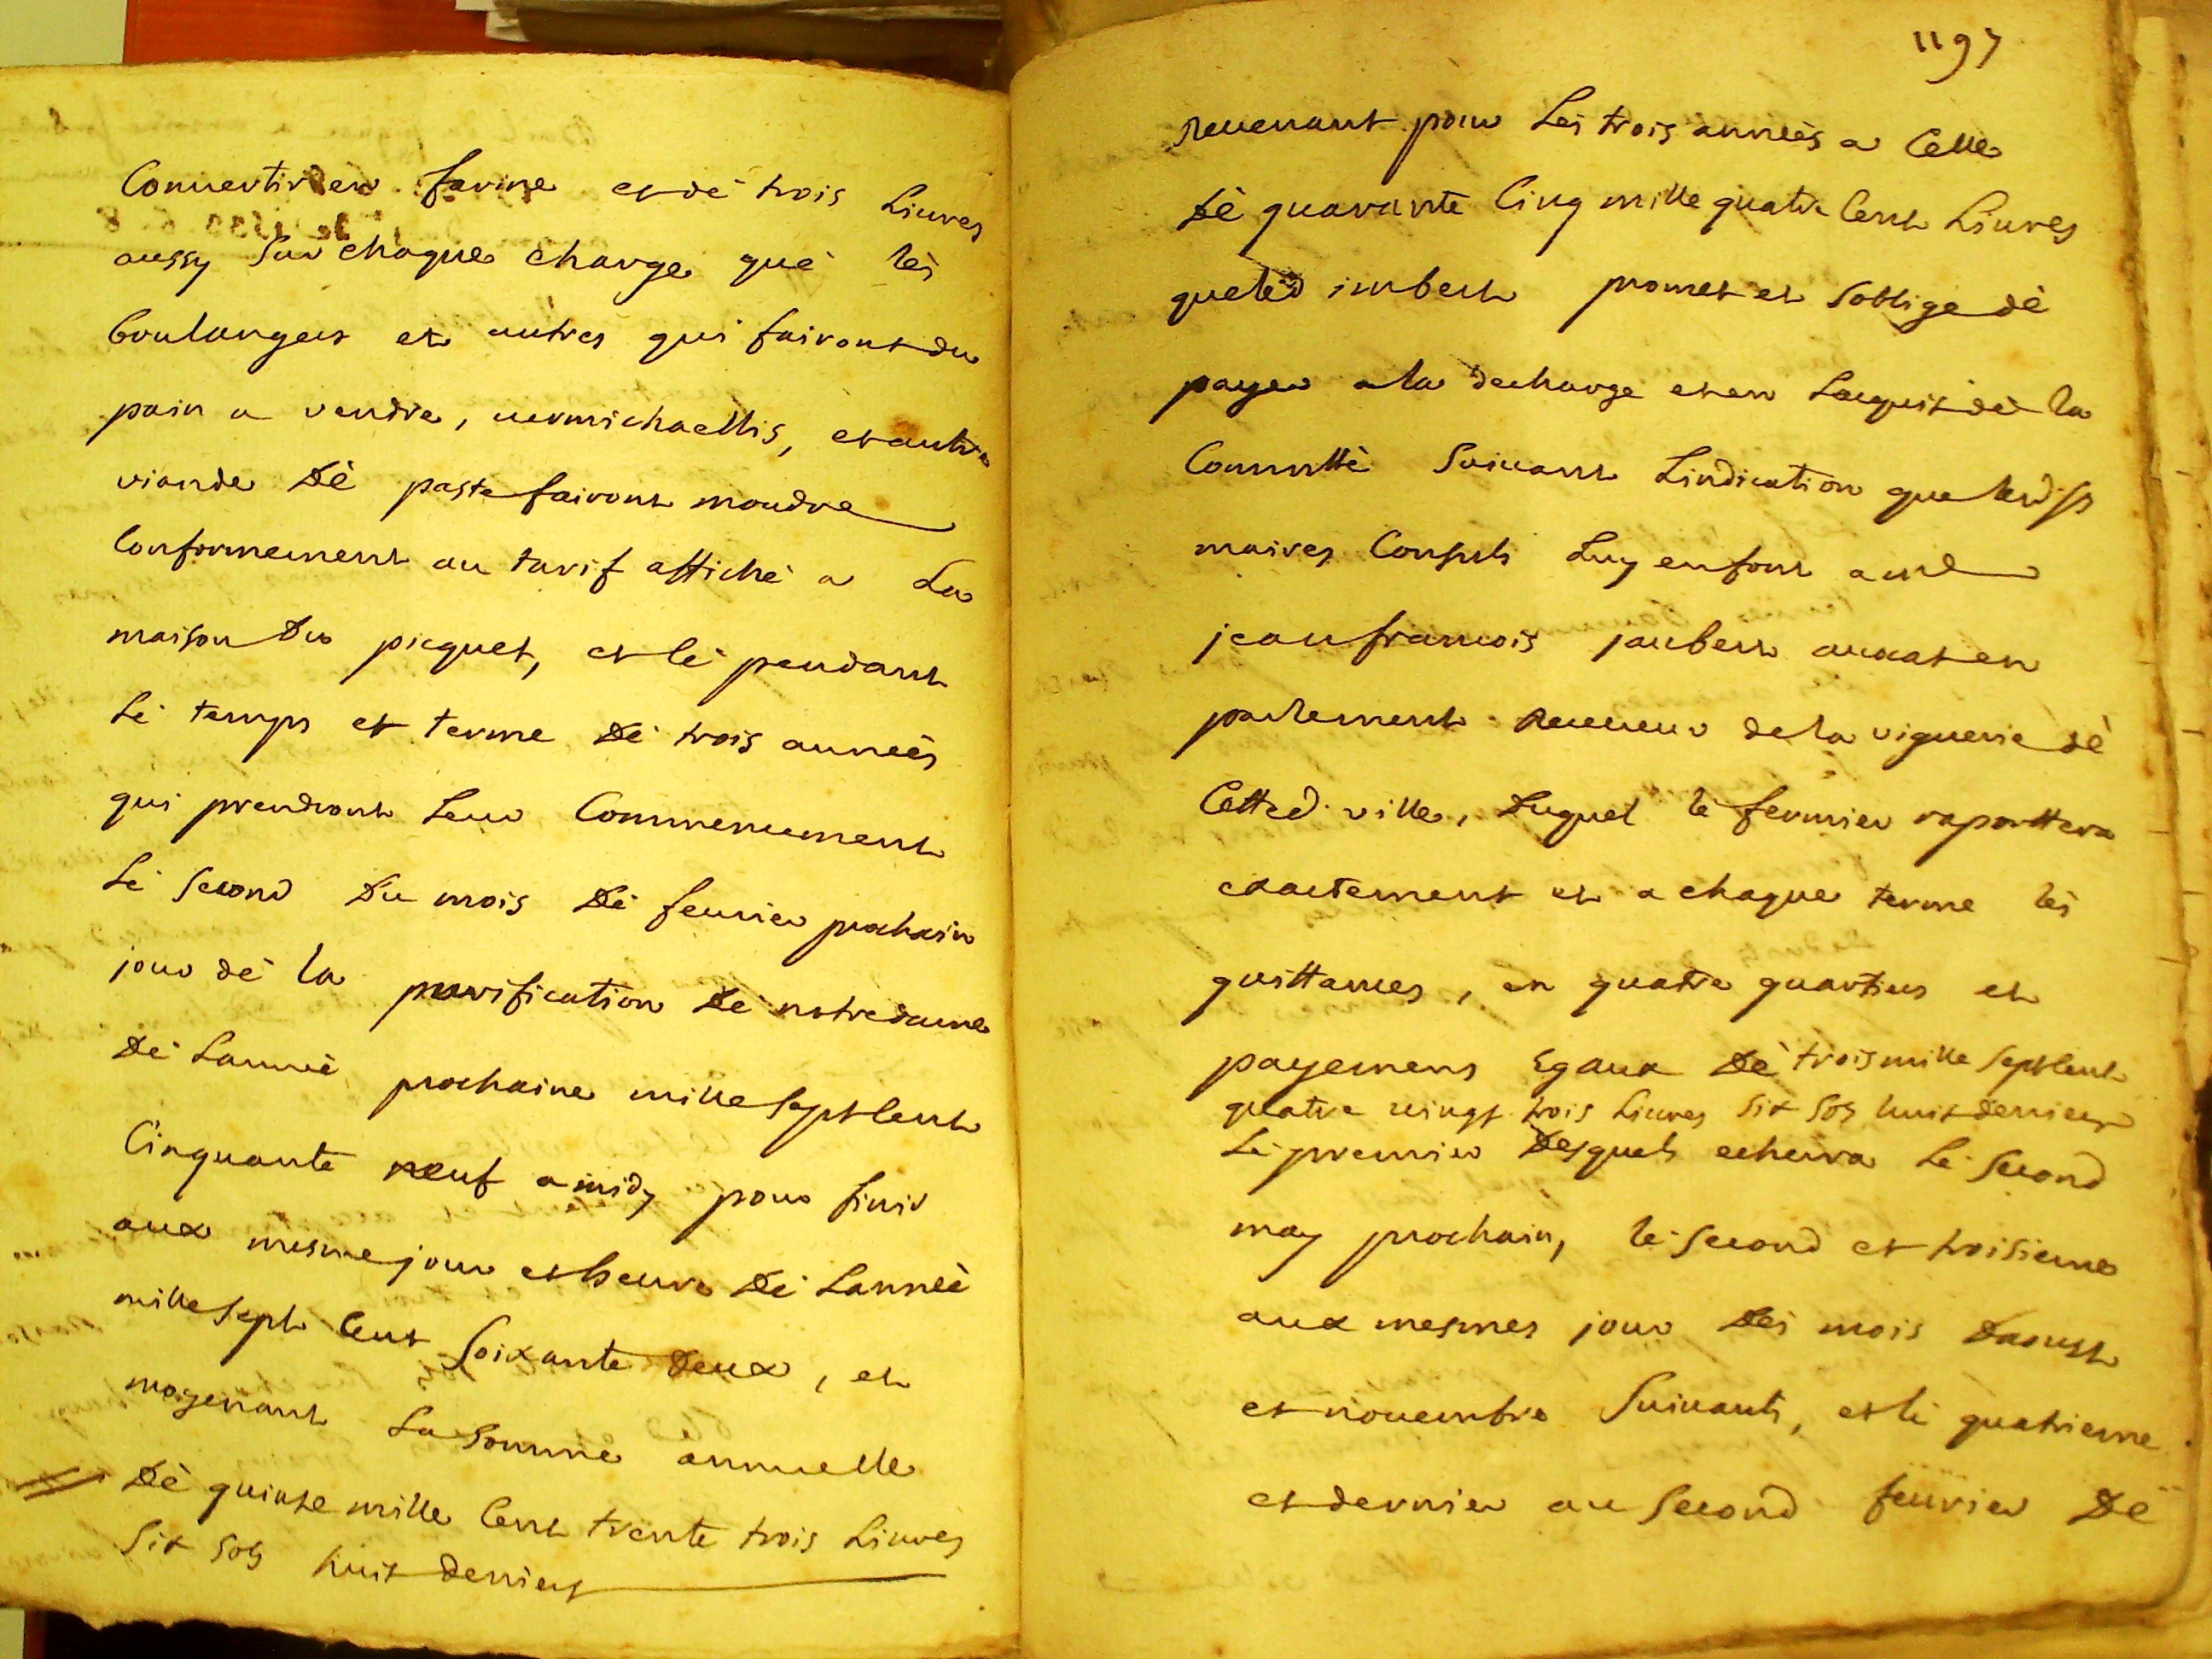 Conuertir en farine et dè trois Liures
aussy Sur chaque charge què lès
boulangers et autres qui fairont du
pain a vendre, uermichaellis, et autre
viande Dè paste fairont moudre
Conformement au tarif affichè a La
maison Du picquet, et cè pendant
Lè temps et terme Dè trois annèès
qui prendront Leur Commencement
Lè Second Du mois Dè feurier prochain
jour dè la purification Dè notredame
Dè Lannèè prochaine mille Sept Cent
Cinquante neuf a midy pour finir
aux mesme jour et heure Dè Lannèè
mille Sept Cent Soixante Deux, et
moyenant La Somme annuelle
Dè quinze mille Cent trente trois Liures
Six Sols huit Deniers
1197
Reuenant pour Lès trois annèès a Celle
Dè quarante Cinq mille quatre Cent Liures
que led imbert promet et Soblige dè
payer a la decharge et en Lacquit dè la
Commtè Suiuant Lindication que lesd srs
maires Consuls Luy en font a md
jean francois jaubert auocat en
parlement Receueur de la viguerie dè
Cette d. ville, Duquel lè fermier raporttera
exactement et a chaque terme lès
quittances, en quatre quartiers et
payemens Egaux Dè trois mille Sept Cent
quatre uingt trois Liures Six Sols huit deniers
Lè premier Desquels echerra Lè Second
may prochain, lè Second et troisieme
aux mesmes jour Dès mois Daoust
et nouembre Suiuants, et lè quatrieme
et dernier au Second feurier Dè